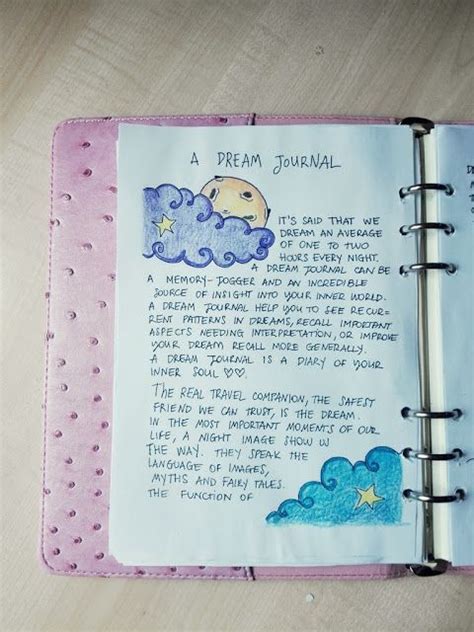 A DREAM JOURNAL
IT'S SAID THAT WE
DREAM AN AVERAGE
OF ONE TO TWO
HOURS EVERY NIGHT.
A DREAM JOURNAL CAN BE
A MEMORY-JOGGER AND AN INCREDIBLE
SOURCE OF INSIGHT INTO YOUR INNER WORLD.
A DREAM JOURNAL HELP YOU TO SEE RECUR=
RENT PATTERNS IN DREAMS, RECALL IMPORTANT
ASPECTS NEEDING INTERPRETATION, OR IMPROVE
YOUR DREAM RECALL MORE GENERALLY.
A DREAM JOURNAL IS A DIARY OF YOUR
INNER SOUL ♡♡.
THE REAL TRAVEL COMPANION, THE SAFEST
FRIEND WE CAN TRUST, IS THE DREAM.
IN THE MOST IMPORTANT MOMENTS OF OUR
LIFE, A NIGHT IMAGE SHOW US
THE WAY. THEY SPEAK THE
LANGUAGE OF IMAGES,
MYTHS AND FAIRY TALES.
THE FUNCTION OF